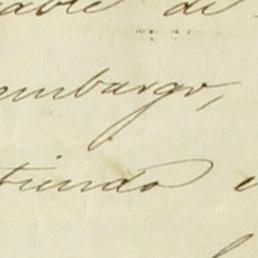 able de
embargo,
tiendo